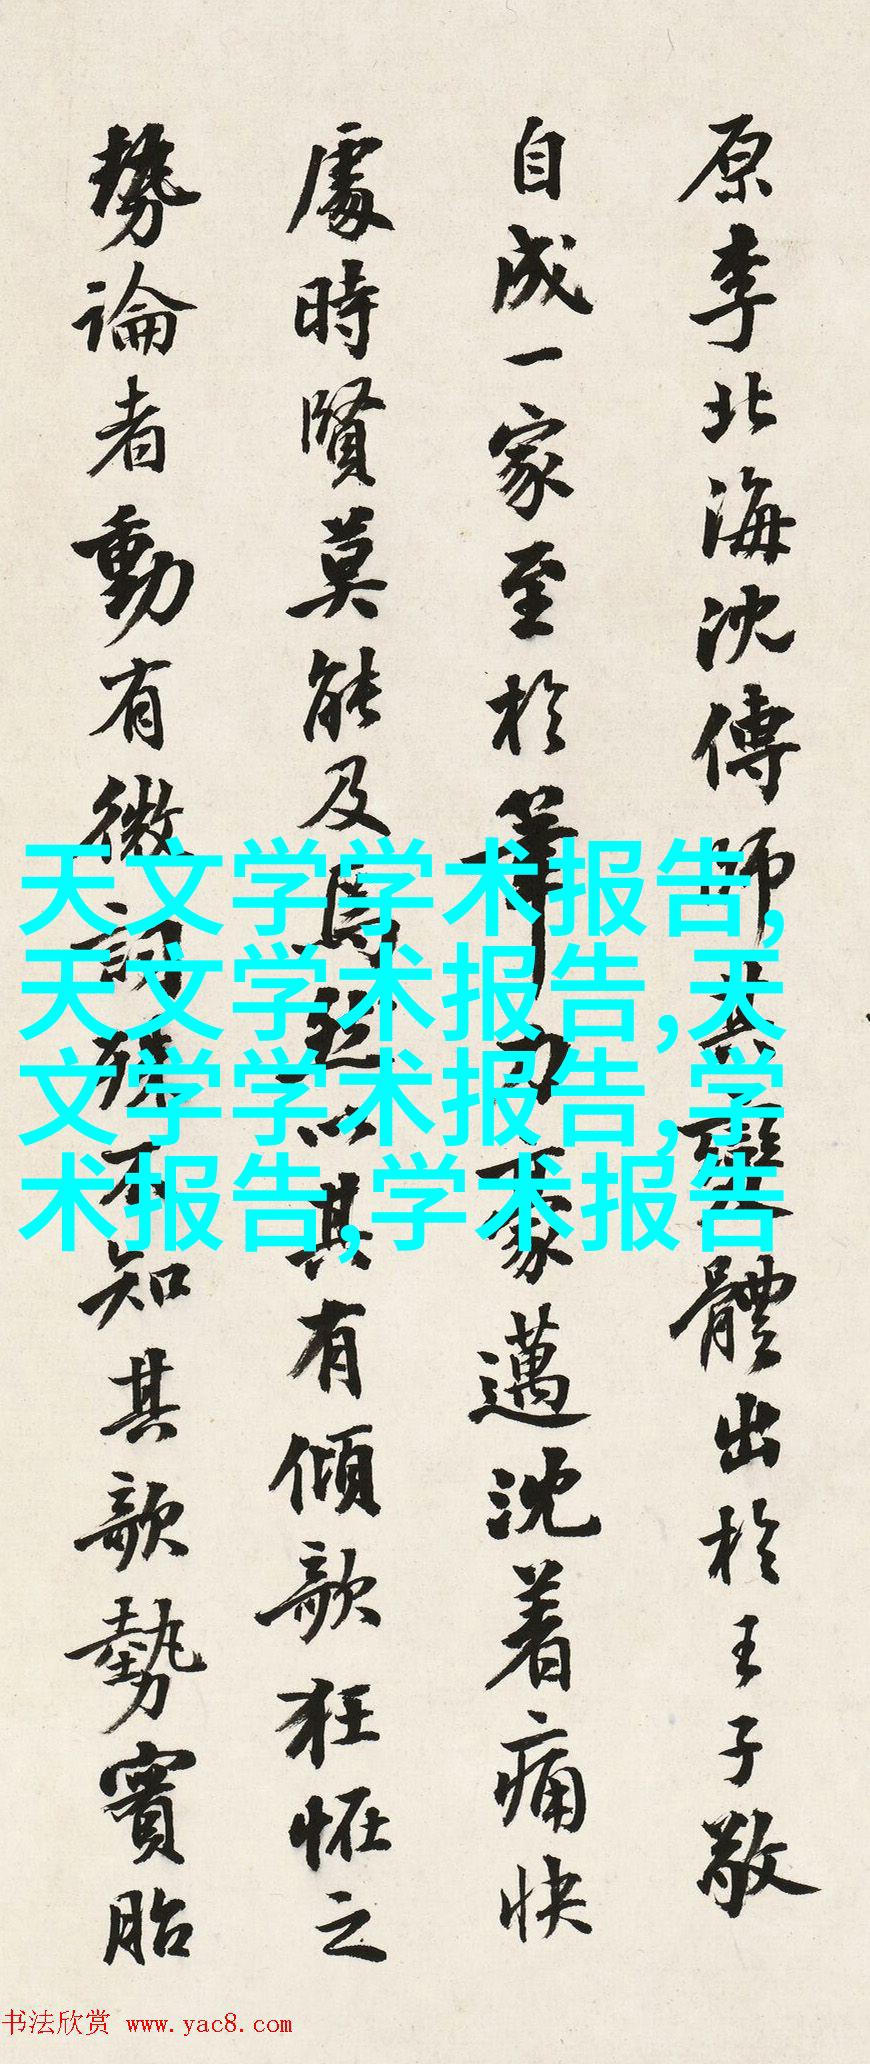 原李北海沈傳師其變體出於王子敬
自成一家至於筆力豪邁沈着痛快
處時賢莫能及以其有傾欹狂怪之
勢論者動有微詞殊不知其欹勢實胎
天文学学术报告,
天文学术报告,天
文学学术报告,学
术报告,学术报告
书法欣赏 www.yac8.com